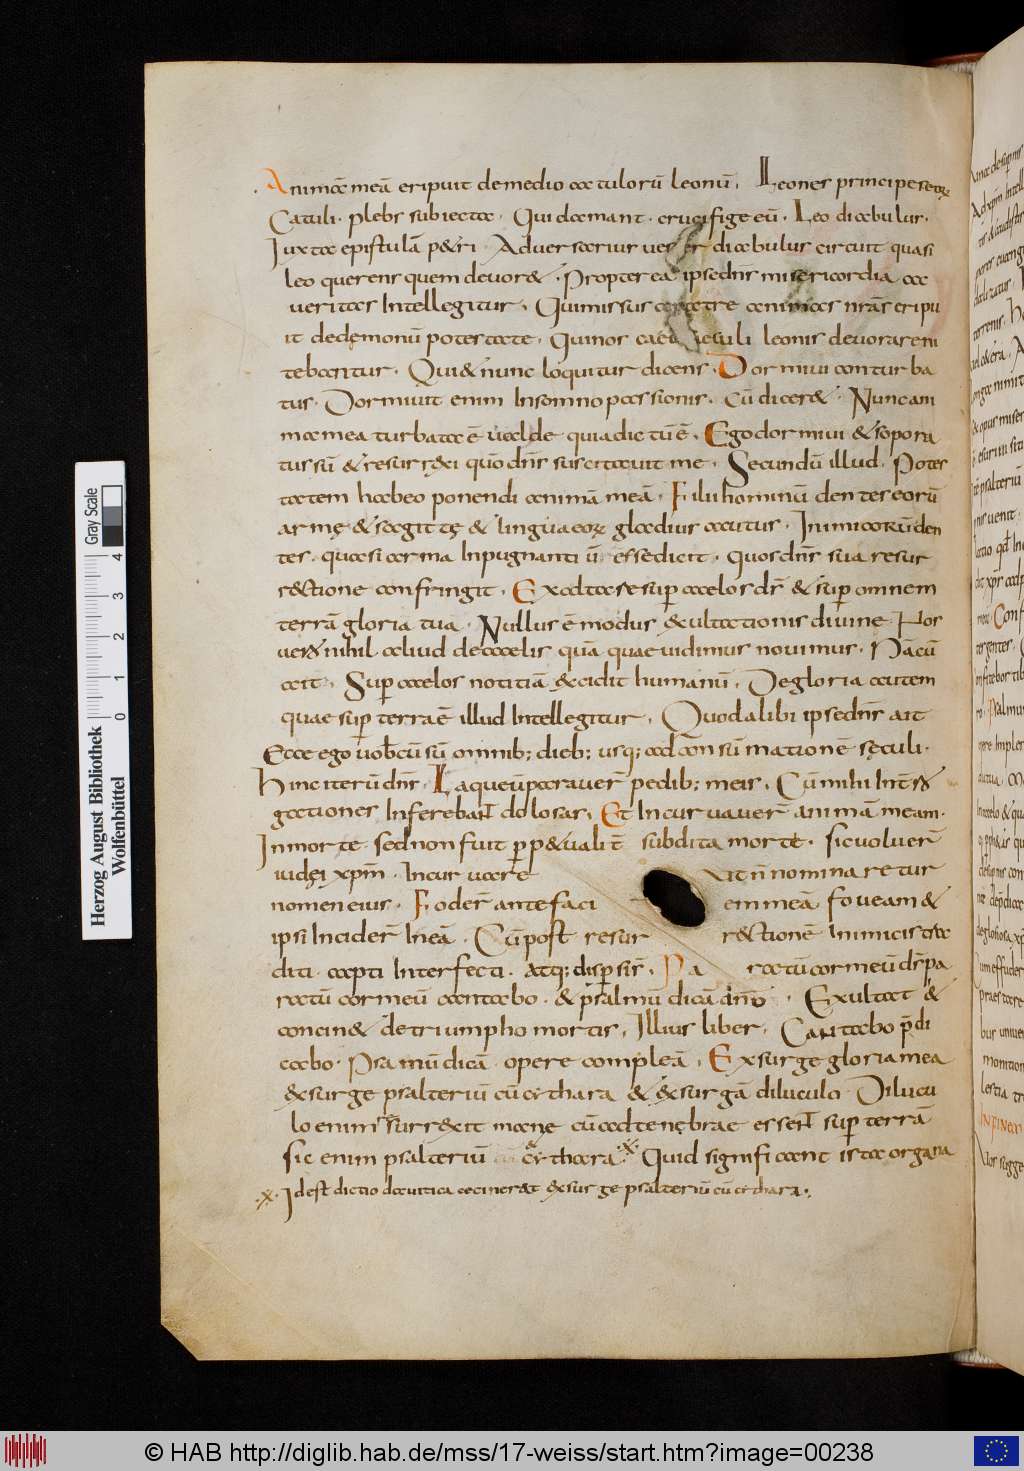 Animā meā eripuit demedio catulorū leonū. Leones principes eorꝝ
Catuli. plebs subiecta. Qui clamant. crucifige eū. Leo diabulus.
Iuxta epistulā petri. Adversarius vester diabulus circuit quasi
leo querens quem devoret. Propter ea ipsedns̄ misericordia ac
veritas Intellegitur. Quimissus certe animas nr̄as eripu
it dedęmonū potestate. Quinos catuli leonis devorareni
tebantur. Qui& nunc loquitur dicens. Dormivi conturba
tus. Dormivit enim Insomnopassionis. Cū dicer&. Nunc ani
mamea turbata ē valde quiadictū ē. Egodormivi &sopora
tussū &resurr&xi quōdn̄s suscitavit me. Secundū illud. Potes
tatem habeo ponendi animā meā. Filiihominū dentes eorū
armę &sagittę & lingua eorꝝ gladius acutus. Inimicorū den
tes. quasi arma Inpugnanti ū essedicit. quosdn̄s sua resur
r&ctione confringit. Exaltare sup caelos ds̄ & sup omnem
terrā gloria tua. Nullus ē modus exultationis divine. Hos
vers& nihil aliud decaelis quā quae vidimus novimus. Nācū
ait. Sup caelos notitiā excidit humanū. Degloria autem
quae sup terrā ē illud Intellegitur. Quodalibi ipsedn̄s ait
Ecce ego vobcū sū omnib; dieb; usq; ad con sūmationē sęculi.
Hinc iterū dn̄s. Laqueūparaver̄ pedib; meis. Cū mihi Inter̄
gationes Inferebant dolosas. Et Incurvaver̄ animā meam.
Inmorte. sednon fuit pp&ualit ē subdita morte. sicvoluer̄
iudęi xpm̄. Incurvare ait n̄ nominaretur
nomen eius. Foder̄ antefaci em meā foveam &
ipsi Incider̄ Ineā. Cū post resur r&ctionē Inimicistra
diti. capti Interfecti. atq; dispersi sr̄. Pa ratū cormeū ds̄ pa
ratū cormeū cantabo. & psalmū dicā dn̄o. Exultat &
concin& detriumpho mortis. Illius liber. Cantabo p̄di
cabo. Psalmū dicā. opere compleā. Exsurge gloria mea
&xsurge psalteriū cū cythara & &xsurgā diluculo. Dilucu
lo enim surr&xit mane cū adtenębrae essent sup terrā
sic enim psalteriū cythara. Quid significant ista organa
.x. Idest dictio davitica cecinerat &xsurge psalteriū cū cithara.
Herzog August Bibliothek
Wolfenbüttel
Gray Scale
0 1 2 3 4
© HAB http://diglib.hab.de/mss/17-weiss/start.htm?image=00238